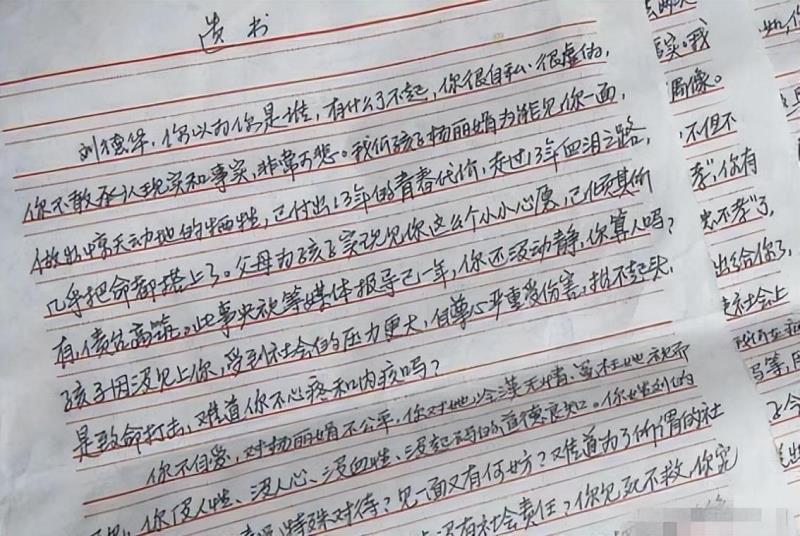 遗书
刘德华,你以为你是谁,有什么了不起,你很自私,很虚伪,
你不敢承认现实和事实,非常可悲。我们孩子杨丽娟为能见你一面,
做出惊天动地的牺牲,已付出13年的青春代价,走过13年血泪之路,
几乎把命都搭上了。父母为孩子实现见你这么个小小心愿,已倾其所
有,债台高筑。此事央视等媒体报导已一年,你还没动静,你算人吗?
孩子因没见上你,受到社会的压力更大,自尊心严重受伤害,抬不起头,
是致命打击,难道你不心疼和内疚吗?
你不自爱,对杨丽娟不公平,你对她冷漠无情
你没人性、没人心、没血性、没起码的道德良知。你
特殊对待?见一面又有何妨?难道为了所谓的社
没有社会责任?你见死不救,你完
实。我
偶像。
不但不
孝",你有
忠不孝"了,
出给你了,
社会上
等,